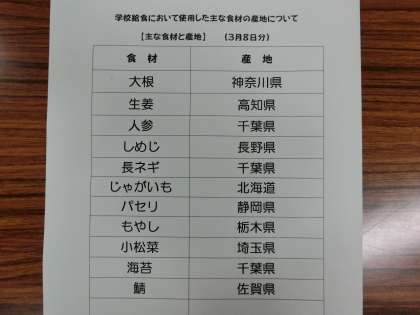 学校給食において使用した主な食材の産地について
【主な食材と産地】 (3月8日分)
食 材 産 地
大根 神奈川県
生姜 高知県
人参 千葉県
しめじ 長野県
長ネギ 千葉県
じゃがいも 北海道
パセリ 静岡県
もやし 栃木県
小松菜 埼玉県
海苔 千葉県
鯖 佐賀県